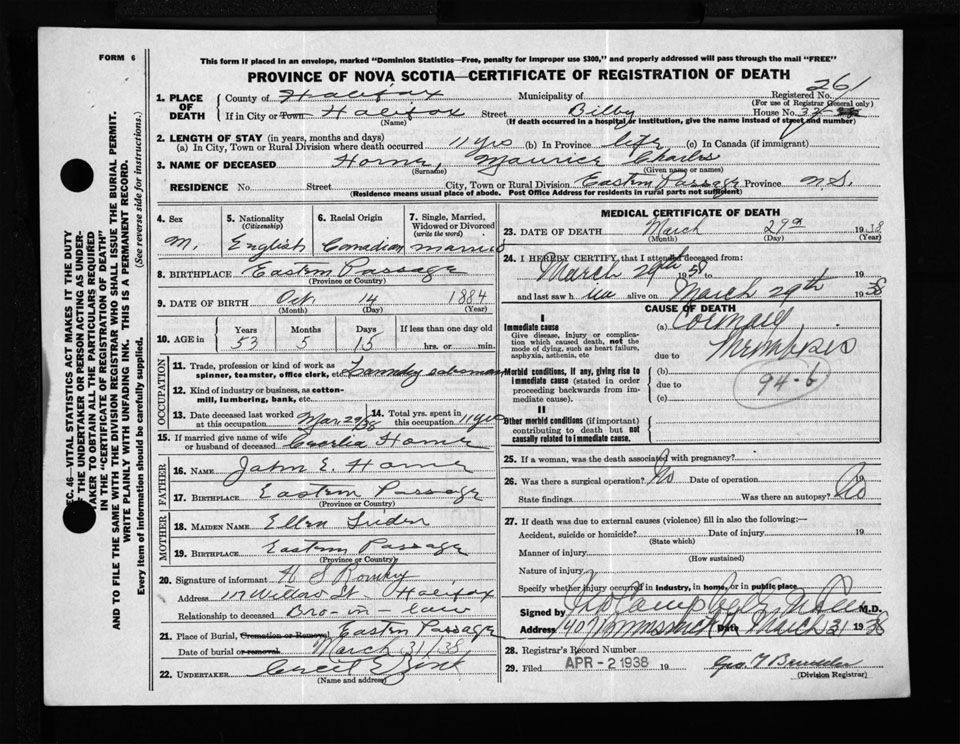 FORM 6
This form if placed in an envelope, marked "Dominion Statistics—Free, penalty for improper use $300," and properly addressed will pass through the mail "FREE"
PROVINCE OF NOVA SCOTIA—CERTIFICATE OF REGISTRATION OF DEATH
SEC. 46—VITAL STATISTICS ACT MAKES IT THE DUTY
OF THE UNDERTAKER OR PERSON ACTING AS UNDER-
TAKER TO OBTAIN ALL THE PARTICULARS REQUIRED
IN THE "CERTIFICATE OF REGISTRATION OF DEATH"
AND TO FILE THE SAME WITH THE DIVISION REGISTRAR WHO SHALL ISSUE THE BURIAL PERMIT.
WRITE PLAINLY WITH UNFADING INK. THIS IS A PERMANENT RECORD.
Every item of Information should be carefully supplied. (See reverse side for instructions.)
1. PLACE OF DEATH County of Halifax Municipality of Registered No. 261
(For use of Registrar General only)
If in City or Town Halifax Street Bilby House No.
(Name) (If death occurred in a hospital or institution, give the name instead of street and number)
2. LENGTH OF STAY (in years, months and days)
(a) In City, Town or Rural Division where death occurred 11 yrs (b) In Province life (c) In Canada (if immigrant)
3. NAME OF DECEASED Horne, Maurice Charles
(Surname) (Given name or names)
RESIDENCE No. Street City, Town or Rural Division Eastern Passage Province N.S.
(Residence means usual place of abode. Post Office Address for residents in rural parts not sufficient)
4. Sex M.
5. Nationality (Citizenship) English
6. Racial Origin Canadian
7. Single, Married, Widowed or Divorced (write the word) married
8. BIRTHPLACE Eastern Passage
(Province or Country)
9. DATE OF BIRTH Oct 14 1884
(Month) (Day) (Year)
10. AGE in Years 53 Months 5 Days 15 If less than one day old hrs. or min.
OCCUPATION
11. Trade, profession or kind of work as spinner, teamster, office clerk, etc. Laundry salesman
12. Kind of industry or business, as cotton-mill, lumbering, bank, etc.
13. Date deceased last worked at this occupation Mar 29/38 14. Total yrs. spent in this occupation 11 yrs
15. If married give name of wife or husband of deceased Cecelia Horne
FATHER
16. NAME John E. Horne
17. BIRTHPLACE Eastern Passage
(Province or Country)
MOTHER
18. MAIDEN NAME Ellen
19. BIRTHPLACE Eastern Passage
(Province or Country)
20. Signature of informant H S
Address 117 Willow St - Halifax
Relationship to deceased Bro-in-law
21. Place of Burial, Cremation or Removal Eastern Passage
Date of burial or removal March 31/38
22. UNDERTAKER Cecil E Zink
(Name and address)
MEDICAL CERTIFICATE OF DEATH
23. DATE OF DEATH March 29th 1938
(Month) (Day) (Year)
24. I HEREBY CERTIFY, that I attended deceased from:
March 29th 38 to 19
and last saw him alive on March 29th 1938
CAUSE OF DEATH
I
Immediate cause
Give disease, injury or complication which caused death, not the mode of dying, such as heart failure, asphyxia, asthenia, etc
(a) Coronary
due to
Morbid conditions, if any, giving rise to immediate cause (stated in order proceeding backwards from immediate cause).
(b)
due to
(c)
94-b
II
Other morbid conditions (if important) contributing to death but not causally related to immediate cause.
25. If a woman, was the death associated with pregnancy?
26. Was there a surgical operation? No Date of operation 19
State findings Was there an autopsy? No
27. If death was due to external causes (violence) fill in also the following:—
Accident, suicide or homicide? Date of injury 19
(State which)
Manner of injury
(How sustained)
Nature of injury
Specify whether injury occurred in industry, in home, or in public place
Signed by M.D.
Address Date March 31 1938
28. Registrar's Record Number
29. Filed APR - 2 1938 19
(Division Registrar)